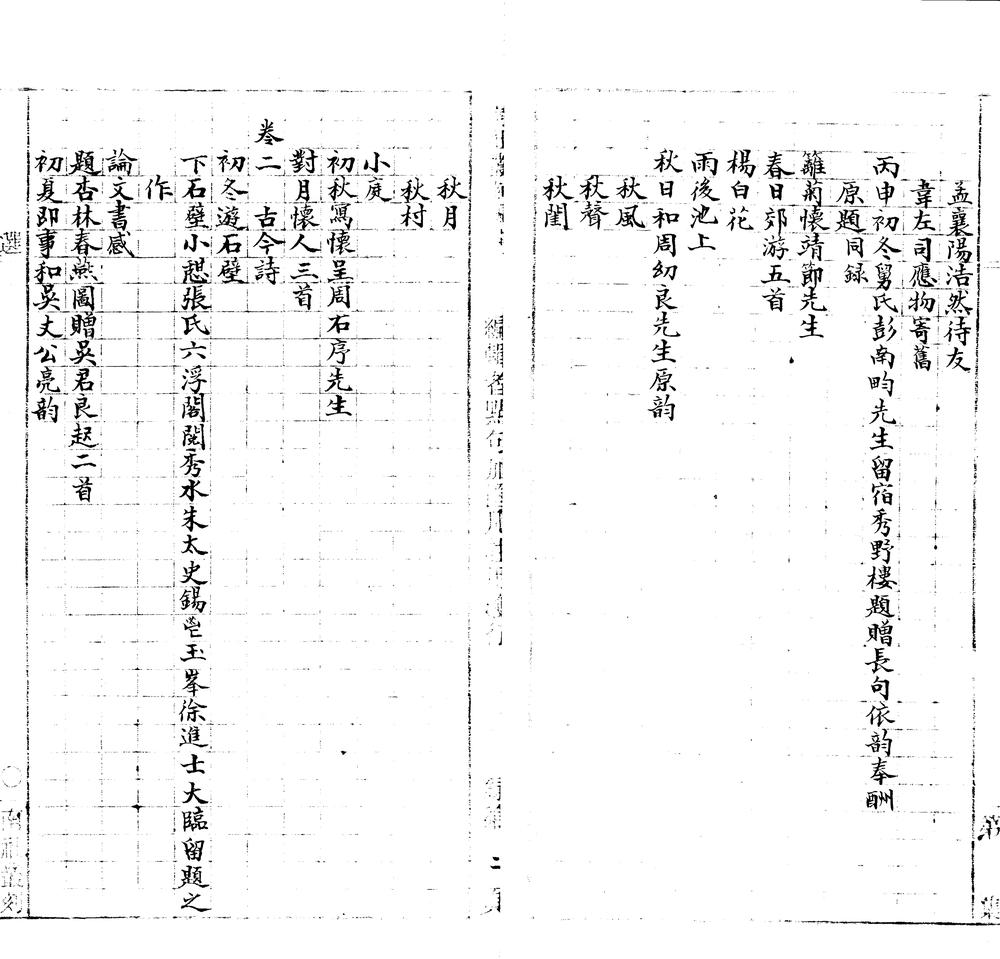 孟襄陽浩然待友
韋左司應物寄舊
丙申初冬舅氏彭南畇先生留宿秀野樓題贈長句依韵奉酬
原題同録
籬菊懷靖節先生
春日郊游五首
楊白花
雨後池上
秋日和周幼良先生原韵
秋風
秋聲
秋閨
秋月
秋村
小庭
初秋寫懷呈周石序先生
對月懷人三首
卷二 古今詩
初冬遊石壁
下石壁小憩張氏六浮閣閱秀水朱太史錫鬯玉峯徐進士大臨留題之
作
論文書感
題杏林春燕圖贈吳君良起二首
初夏即事和吳丈公亮韵